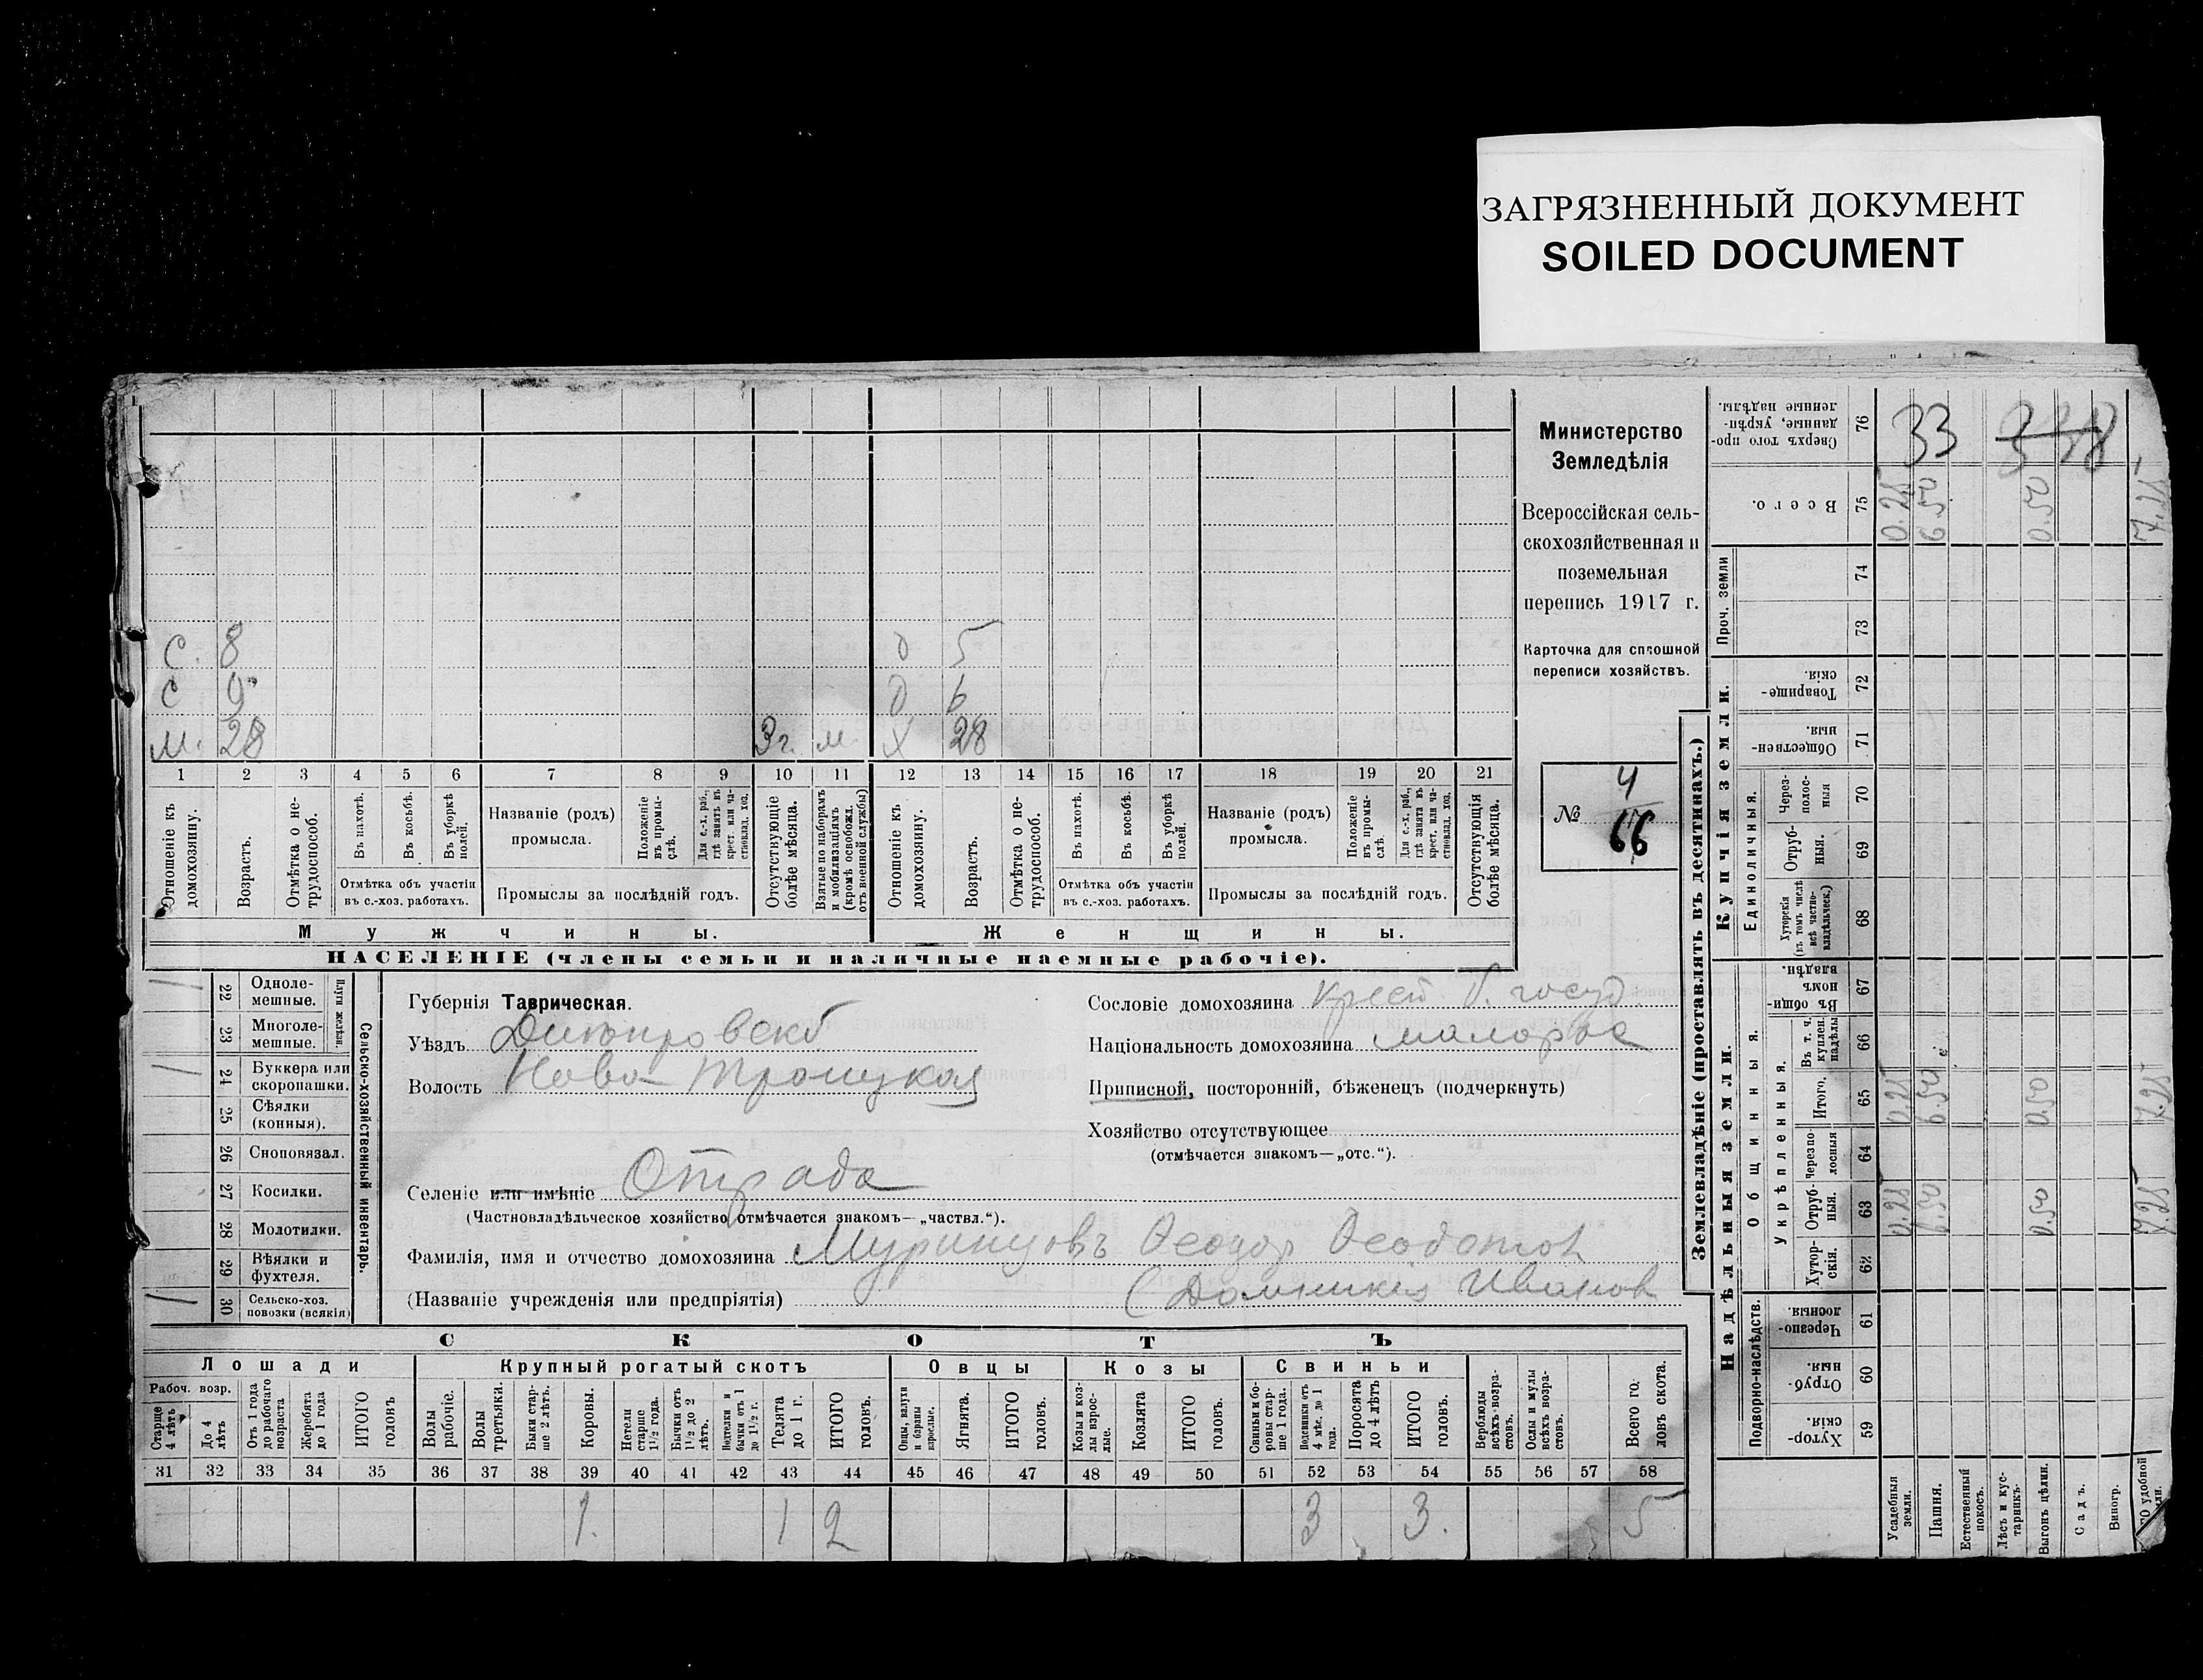 ЗАГРЯЗНЕННЫЙ ДОКУМЕНТ
SOILED DOCUMENT
Министерство
Земледѣлія
Всероссійская сель-
скохозяйственная и
поземельная
перепись 1917 г.
Карточка для сплошной
переписи хозяйствъ.
№ 4
66
С. 8 Д 5
С 9 Д 6
М. 28 3 г. м Х 28
1 2 3 4 5 6 7 8 9 10 11 12 13 14 15 16 17 18 19 20 21
Отношеніе къ домохозяину.
Возрастъ.
Отмѣтка о не-трудоспособ.
Въ пахотѣ.
Въ косьбѣ.
Въ уборкѣ полей.
Отмѣтка объ участіи
въ с.-хоз. работахъ.
Названіе (родъ)
промысла.
Положеніе въ промы-слѣ.
Для с.-х. раб., гдѣ занятъ въ крест. или ча-стновлад. хоз.
Промыслы за послѣдній годъ.
Отсутствующіе болѣе мѣсяца.
Взятые по наборамъ и мобилизаціямъ (кромѣ освобожд. отъ военной службы)
Отношеніе къ домохозяину.
Возрастъ.
Отмѣтка о не-трудоспособ.
Въ пахотѣ.
Въ косьбѣ.
Въ уборкѣ полей.
Отмѣтка объ участіи
въ с.-хоз. работахъ.
Названіе (родъ)
промысла.
Положеніе въ промы-слѣ
Для с.-х. раб., гдѣ занята въ крест. или ча-стновлад. хоз.
Промыслы за послѣдній годъ.
Отсутствующія болѣе мѣсяца.
Мужчины. Женщины.
НАСЕЛЕНІЕ (члены семьи и наличные наемные рабочіе).
Сельско-хозяйственный инвентарь.
Плуги желѣзн.
22 Одноле-мешные.
23 Многоле-мешные.
24 Буккера или скоропашки.
25 Сѣялки (конныя).
26 Сноповязал.
27 Косилки.
28 Молотилки.
29 Вѣялки и фухтеля.
30 Сельско-хоз. повозки (всякія)
Губернія Таврическая.
Уѣздъ Днѣпровскб
Волость Ново-Троицкая
Селеніе или имѣніе Отрада
(Частновладѣльческое хозяйство отмѣчается знакомъ—„частвл.“).
Фамилія, имя и отчество домохозяина Муринцовъ Ѳеодор Ѳеодотов
(Названіе учрежденія или предпріятія) (Домникія Иванов
Сословіе домохозяина крест. б. госуд.
Національность домохозяина малорос
Приписной, посторонній, бѣженецъ (подчеркнуть)
Хозяйство отсутствующее
(отмѣчается знакомъ—„отс.“).
СКОТЪ
Лошади Крупный рогатый скотъ Овцы Козы Свиньи
Рабоч. возр.
Старше 4 лѣтъ
До 4 лѣтъ
Отъ 1 года до рабочаго возраста
Жеребята до 1 года
ИТОГО головъ
Волы рабочіе.
Волы третьяки.
Быки стар-ше 2 лѣтъ.
Коровы.
Нетели старше 1½ года.
Бычки отъ 1½ до 2 лѣтъ.
Подтелки и бычки отъ 1 до 1½ г.
Телята до 1 г.
ИТОГО головъ.
Овцы, валухи и бараны взрослые.
Ягнята.
ИТОГО головъ.
Козы и коз-лы взрос-лые.
Козлята
ИТОГО головъ.
Свиньи и бо-ровы стар-ше 1 года.
Подсвинки отъ 4 мѣс. до 1 года.
Поросята до 4 лѣтъ
ИТОГО головъ.
Верблюды всѣхъ возра-стовъ.
Ослы и мулы всѣхъ возра-стовъ.
Всего го-ловъ скота.
31 32 33 34 35 36 37 38 39 40 41 42 43 44 45 46 47 48 49 50 51 52 53 54 55 56 57 58
1. 1 2 3 3. 5
Землевладѣніе (проставлять въ десятинахъ.)
Надѣльныя земли. Купчія земли. Проч. земли
Подворно-наслѣдств. Общинныя.
Укрѣпленныя. Единоличныя.
Сверхъ того про-данные, укрѣп-ленные надѣлы. 76 33 338
Всего. 75 0.25 6.50 0.50 7.25
74
73
Товарище-скія. 72
Обществен-ныя. 71
Через-полос-ныя 70
Отруб-ныя. 69
Хуторскія (въ томъ числѣ всѣ частно-владѣльческ.) 68
Въ общи-номъ владѣн. 67
Въ т. ч. куплен. надѣлы 66
Итого. 65 0.25 6.50 0.50 7.25
Черезпо-лосныя 64
Отруб-ныя. 63 0.25 6.50 0.50 7.25
Хутор-скія. 62
Черезпо-лосныя 61
Отруб-ныя. 60
Хутор-скія. 59
Усадебныя земли.
Пашня.
Естественный покосъ.
Лѣсъ и кус-тарникъ.
Выгонъ цѣлин.
Садъ.
Виногр.
удобной